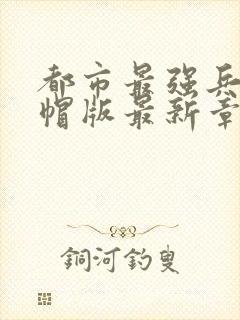 都市最强兵
帽版最新章
銅河釣叟